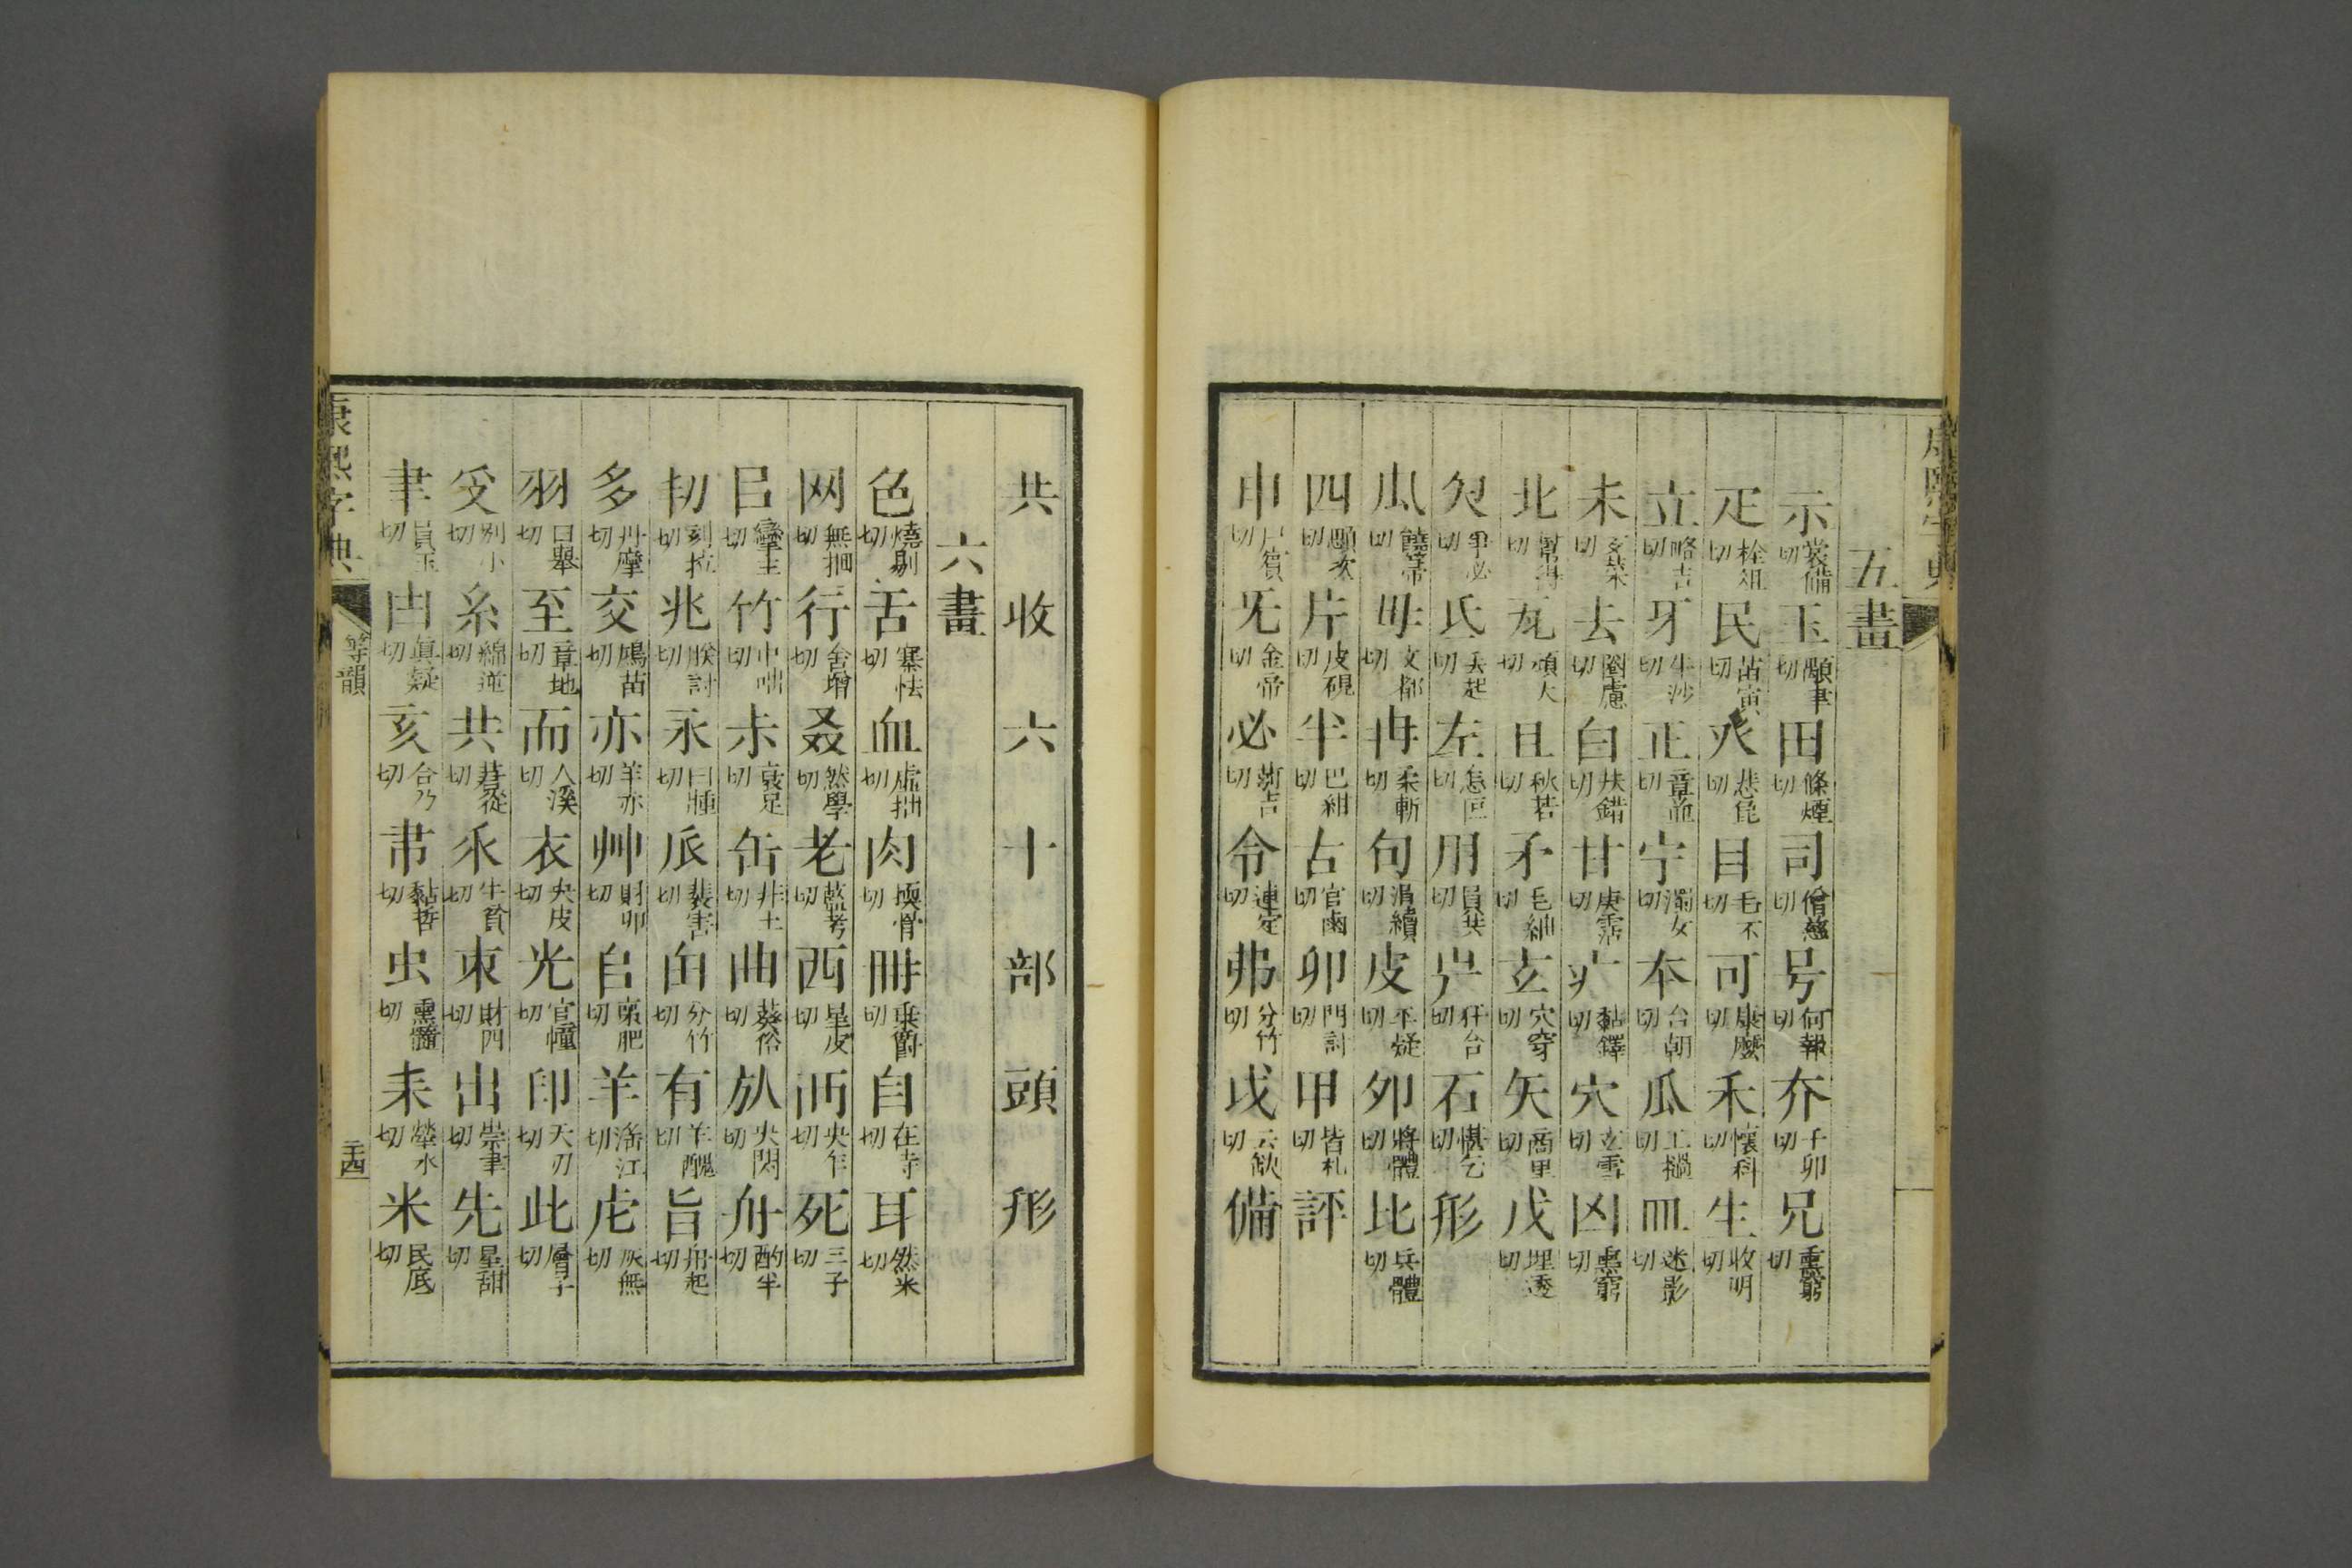 五畫
示裳備切玉願聿切田條煙切司僧慈切号何報切夰千卯切兄熏窮切
疋栓俎切民苗寅切癶悲毘切目毛不切可康麼切禾懷科切生收明切
立略吉切牙牛沙切正章並切宁溺女切夲台朝切瓜工撾切皿迷影切
未玄柴切去劉慮切白扶錯切甘庚霑切疒黏鐸切穴玄雪切凶熏窮切
北幫得切瓦頑大切且秋若切矛毛紬切玄穴穿切矢商里切戊埋透切
氐丢起切左怠叵切用員共切屵犴台切石棋乞切形
瓜饒帝切毋文都切冉柔斬切句涓續切皮平疑切夘將體切比兵體切
四願次切片皮硯切半巴紺切占官鹵切卯門討切甲皆札切評
申尸賓切旡金帝切必薪吉切令連定切弗分竹切戉云缺切備
共收六十部頭形
六畫
色燒剔切舌寨怯切血虛拙切肉換骨切冊乗爵切自在寺切耳然米切
网無捆切行舍增切叒然學切老藍考切西星皮切襾央乍切死三子切
竹中咄切未哀足切缶非土切曲葵俗切㫃尖閃切舟酌半切
㓞刻拉切兆朕討切永曰腫切𠂢裴害切甶分竹切有羊醜切旨舟起切
多丹摩切交鳩苗切亦羊亦切艸財卯切𠂤稟肥切羊潘江切虍灰無切
羽曰舉切至章地切而人溪切衣央皮切光官幢切印天刃切此層子切
𠬪别小切糸綿逆切共葺從切乑牛貧切朿財四切出崇聿切先星甜切
聿員玉切甶真疑切亥合乃切黹黏哲切虫熏髓切耒犖水切米民底切
康熙字典
等韻